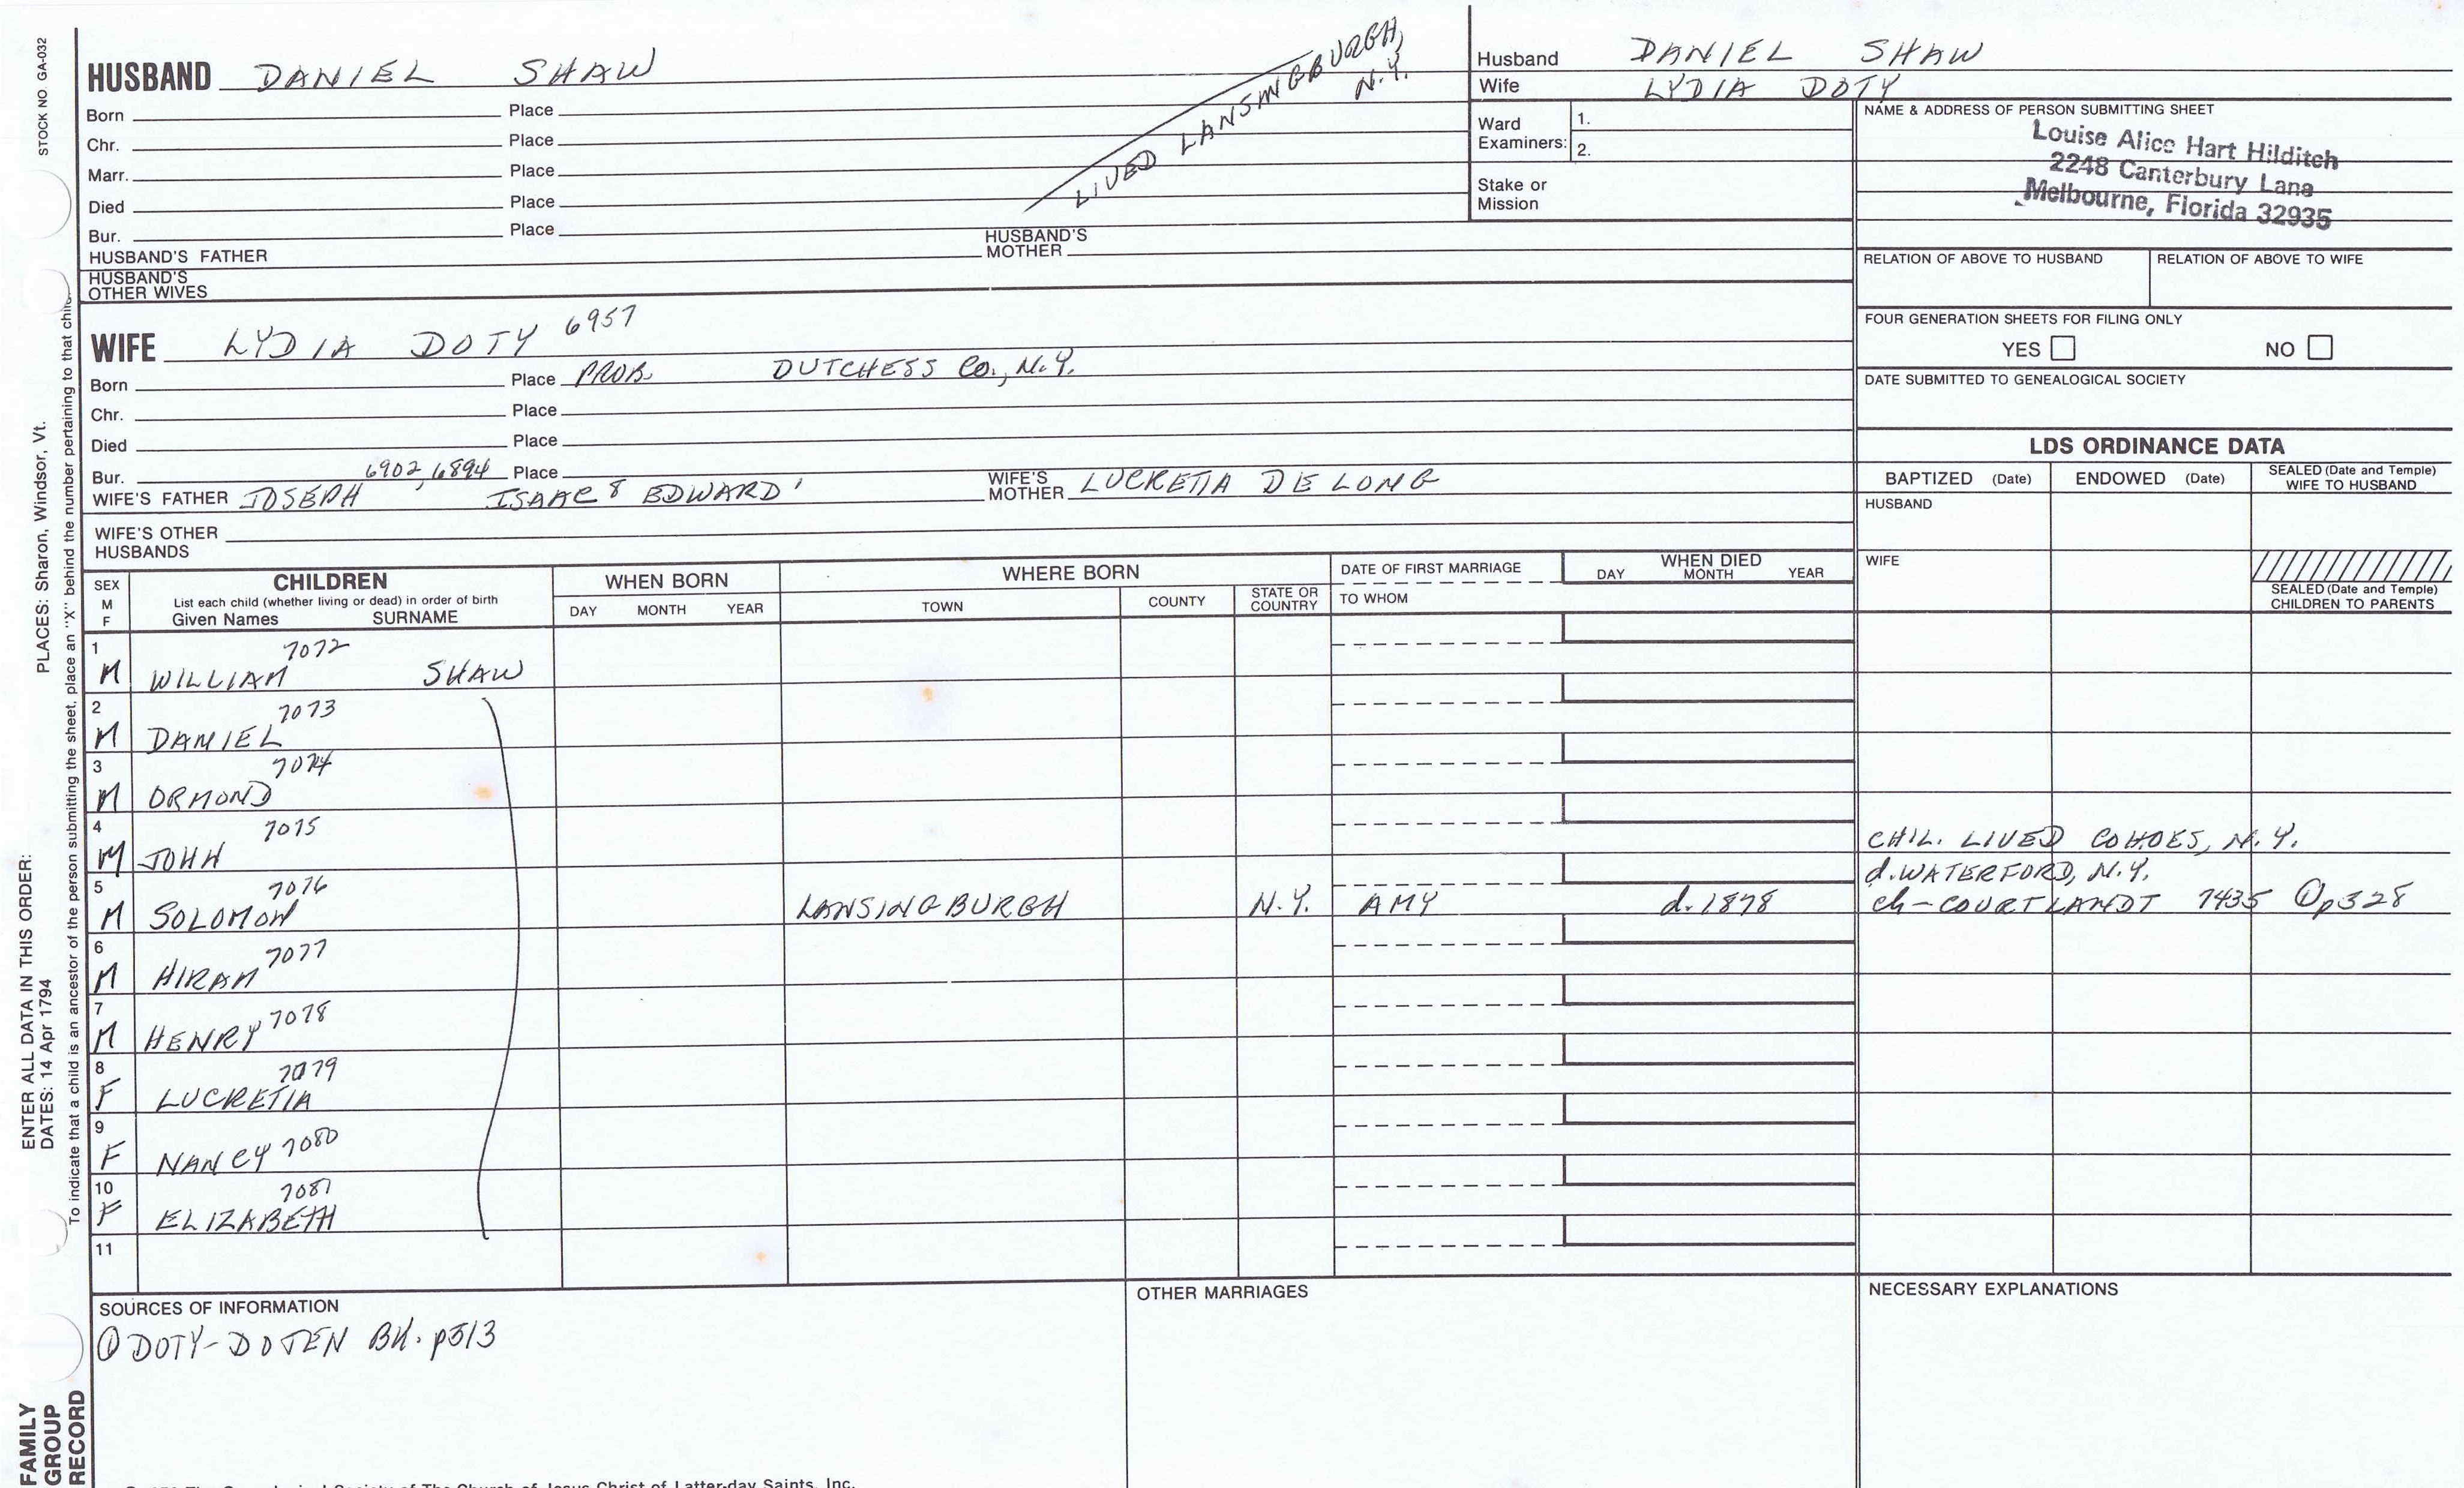 STOCK NO GA-032
HUSBAND DANIEL SHAW
Born Place
Chr. Place
Marr. Place
Died Place
Bur. Place
LIVED LANSINGBURGH,
N.Y.
HUSBAND'S FATHER HUSBAND'S MOTHER
HUSBAND'S OTHER WIVES
Husband DANIEL SHAW
Wife LYDIA DOTY
Ward Examiners: 1.
2.
Stake or Mission
NAME & ADDRESS OF PERSON SUBMITTING SHEET
Louise Alice Hart Hilditch
2248 Canterbury Lane
Melbourne, Florida 32935
RELATION OF ABOVE TO HUSBAND RELATION OF ABOVE TO WIFE
FOUR GENERATION SHEETS FOR FILING ONLY
YES NO
DATE SUBMITTED TO GENEALOGICAL SOCIETY
WIFE LYDIA DOTY 6957
Born Place PROB. DUTCHESS Co., N.Y.
Chr. Place
Died Place
Bur. 6902, 6894 Place
WIFE'S FATHER JOSEPH ISAAC8 EDWARD' WIFE'S MOTHER LUCRETIA DE LONG
WIFE'S OTHER HUSBANDS
LDS ORDINANCE DATA
BAPTIZED (Date) ENDOWED (Date) SEALED (Date and Temple) WIFE TO HUSBAND
HUSBAND
WIFE
SEALED (Date and Temple) CHILDREN TO PARENTS
SEX M F
CHILDREN
List each child (whether living or dead) in order of birth
Given Names SURNAME
WHEN BORN
DAY MONTH YEAR
WHERE BORN
TOWN COUNTY STATE OR COUNTRY
DATE OF FIRST MARRIAGE
TO WHOM
WHEN DIED
DAY MONTH YEAR
1 7072
M WILLIAM SHAW
2 7073
M DANIEL
3 7074
M ORMOND
4 7075
M JOHN
CHIL. LIVED COHOES, N.Y.
d. WATERFORD, N.Y.
5 7076
M SOLOMON LANSINGBURGH N.Y. AMY d. 1878 ch-COURTLANDT 7435 ① p328
6 7077
M HIRAM
7 7078
M HENRY
8 7079
F LUCRETIA
9 7080
F NANCY
10 7081
F ELIZABETH
11
SOURCES OF INFORMATION
① DOTY-DOTEN BK. p513
OTHER MARRIAGES
NECESSARY EXPLANATIONS
ENTER ALL DATA IN THIS ORDER:
DATES: 14 Apr 1794
PLACES: Sharon, Windsor, Vt.
To indicate that a child is an ancestor of the person submitting the sheet, place an "X" behind the number pertaining to that child
FAMILY
GROUP
RECORD
Society of The Church of Jesus Christ of Latter-day Saints, Inc.